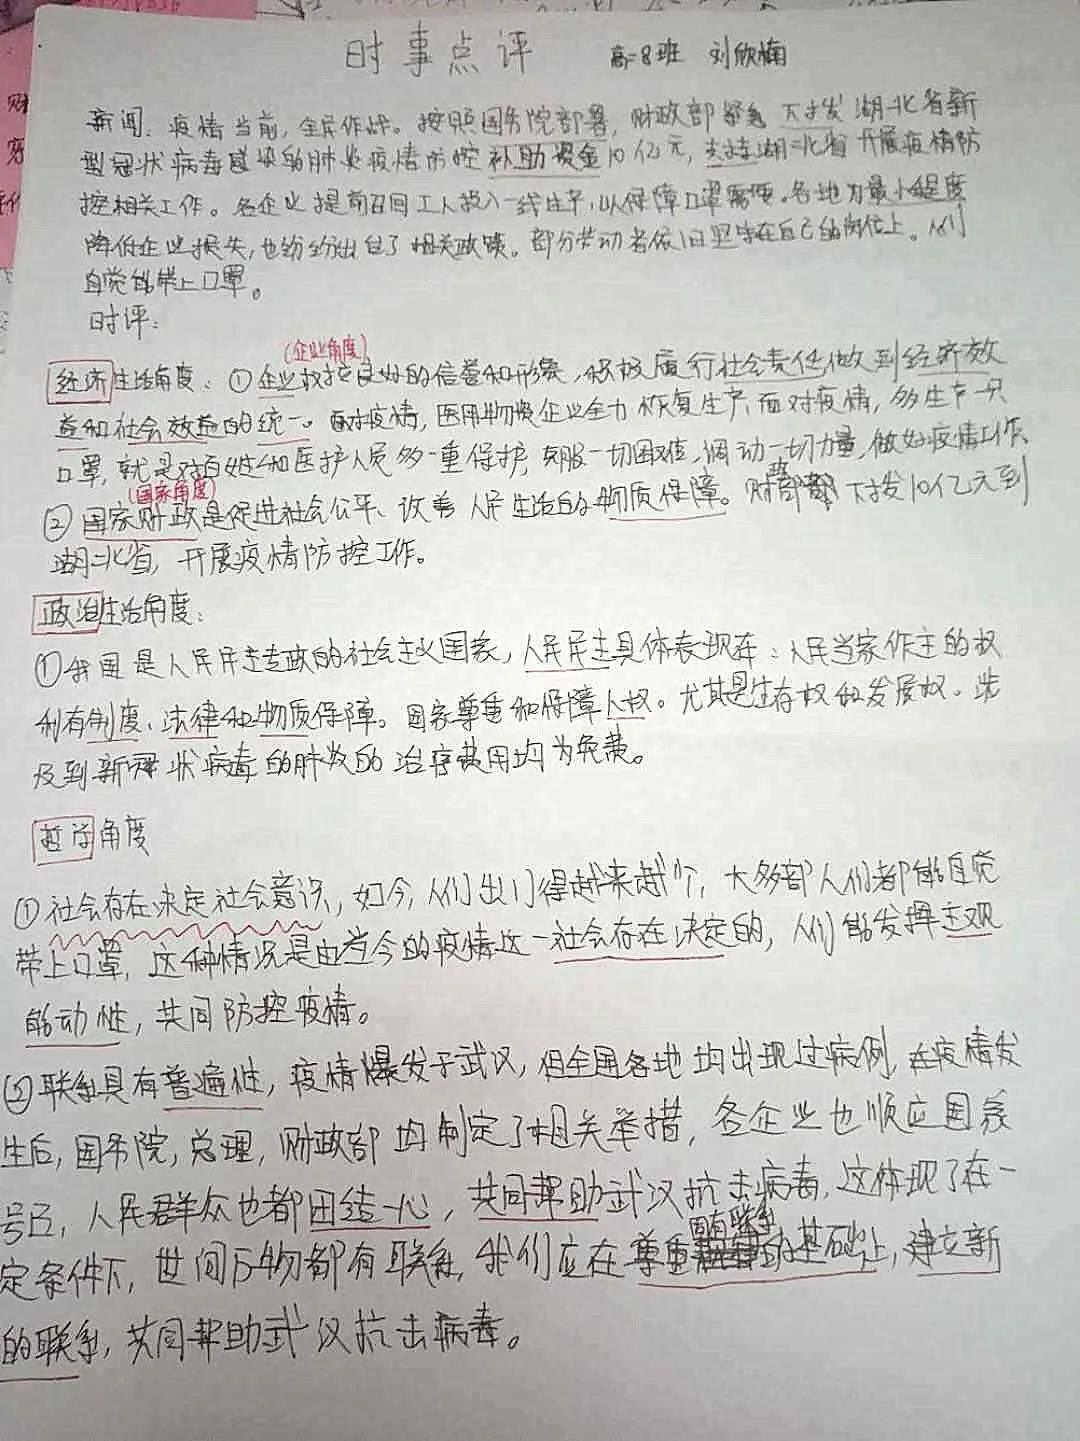 时事点评 高二8班 刘欣楠
新闻:疫情当前,全民作战。按照国务院部署,财政部紧急下拨湖北省新
型冠状病毒感染的肺炎疫情防控补助资金10亿元,支持湖北省开展疫情防
控相关工作。各企业提前召回工人投入一线生产,以保障口罩需要。各地为最小程度
降低企业损失,也纷纷出台了相关政策。部分劳动者依旧坚守在自己的岗位上。人们
自觉能带上口罩。
时评:
(企业角度)
经济生活角度:①企业权按良好的信誉和形象,积极履行社会责任做到经济效
益和社会效益的统一。面对疫情,医用物资企业全力恢复生产,面对疫情,多生产一只
口罩,就是对百姓和医护人员多一重保护,克服一切困难,调动一切力量,做好疫情工作。
(国家角度)
②国家财政是促进社会公平、改善人民生活的物质保障。财政部下拨10亿元到
湖北省,开展疫情防控工作。
政治生活角度:
①我国是人民民主专政的社会主义国家,人民民主具体表现在:人民当家作主的权
利有制度、法律和物质保障。国家尊重和保障人权。尤其是生存权和发展权。涉
及到新冠状病毒的肺炎的治疗费用均为免费。
哲学角度
①社会存在决定社会意识,如今,人们出门得越来越少,大多部人们都能自觉
带上口罩,这种情况是由当今的疫情这一社会存在决定的,人们能发挥主观
能动性,共同防控疫情。
②联系具有普遍性,疫情爆发于武汉,但全国各地均出现过病例,在疫情发
生后,国务院,总理,财政部均制定了相关举措,各企业也顺应国家
号召,人民群众也都团结一心,共同帮助武汉抗击病毒,这体现了在一
定条件下,世间万物都有联系,我们应在尊重固有联系的基础上,建立新
的联系,共同帮助武汉抗击病毒。